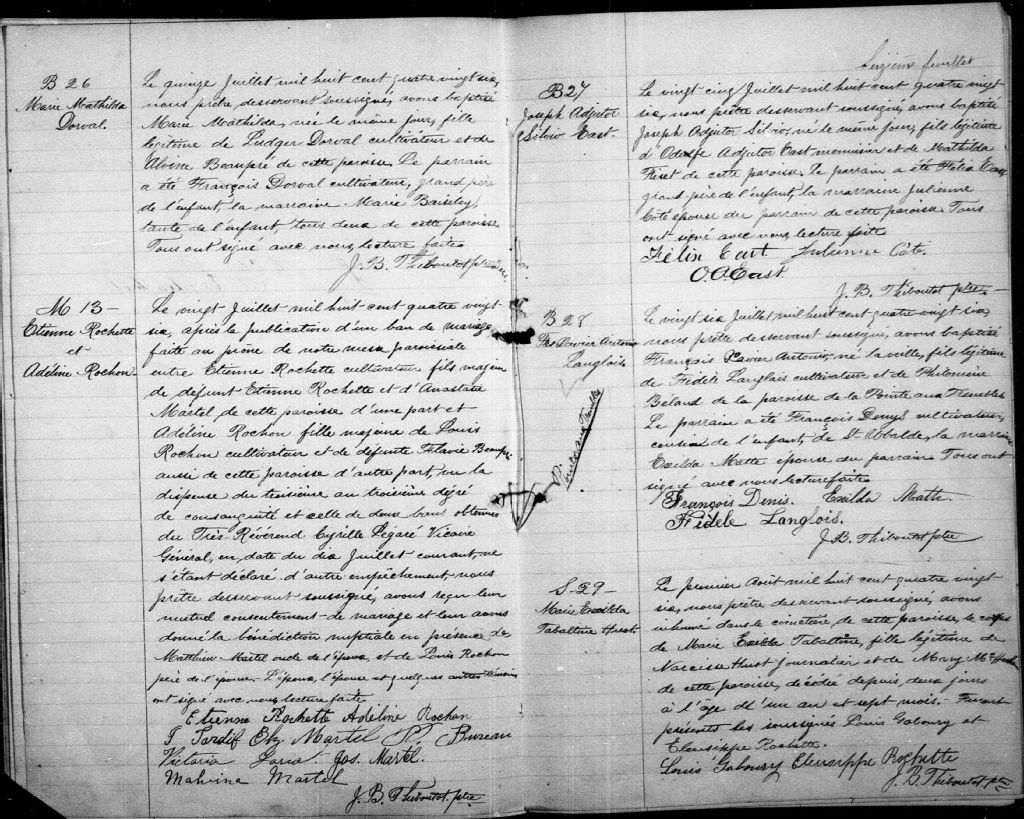 B 26
Marie Mathilda
Dorval.
Le quinze Juillet mil huit cent quatre vingt six,
nous prêtre, desservant soussigné, avons baptisé
Marie Mathilda, née le même jour, fille
légitime de Ludger Dorval cultivateur et de
Alvine Beaupré de cette paroisse. Le parrain
a été François Dorval cultivateur, grand père
de l'enfant, la marraine Marie
tante de l'enfant, tous deux de cette paroisse.
Tous ont signé avec nous, lecture faite
J. B. Thiboutot ptre
M 13 —
Etienne Rochette
et
Adéline Rochon
Le vingt Juillet mil huit cent quatre vingt
six, après la publication d'un ban de mariage
faite au prône de notre messe paroissiale
entre Etienne Rochette cultivateur fils majeur
de défunt Etienne Rochette et d'Anastasie
Martel de cette paroisse d'une part et
Adéline Rochon fille majeure de Louis
Rochon cultivateur et de défunte Flavie Beaupré
aussi de cette paroisse d'autre part, vu la
dispense du troisième au troisième dégré
de consanguité et celle de deux bans obtenues
du Très Révérend Cyrille Légaré Vicaire
Général, en date du dix Juillet courant, ne
s'étant déclaré d'autre empêchement, nous
prêtre desservant soussigné, avons reçu leur
mutuel consentement de mariage et leur avons
donné la bénédiction nuptiale en présence de
Matthieu Martel oncle de l'époux, et de Louis Rochon
père de l'épouse. L'époux, l'épouse et quelques autres témoins
ont signé avec nous, lecture faite
Etienne Rochette Adéline Rochon
F. Tardif Elz. Martel P. Bureau
Victoria Jos. Martel.
Malvina Martel
J. B. Thiboutot. ptre
feuillet
B 27
Joseph Adjutor
Silvio East.
Le vingt cinq Juillet mil huit cent quatre vingt
six, nous prêtre desservant soussigné, avons baptisé
Joseph Adjutor Silvio, né le même jour, fils légitime
d'Odolfe Adjutor East menuisier et de Mathilda
de cette paroisse. Le parrain a été Félix East
grand père de l'enfant, la marraine Julienne
Côté épouse du parrain de cette paroisse. Tous
ont signé avec nous, lecture faite
Félix East Julienne Côté.
O. A. East
J. B. Thiboutot ptre
B 28
Frs Xavier Antonio
Langlois
Pointe aux Trembles
Le vingt six Juillet mil huit cent quatre vingt six,
nous prêtre desservant soussigné, avons baptisé
François Xavier Antonio, né la veille, fils légitime
de Fidèle Langlais cultivateur et de Philomène
Béland de la paroisse de la Pointe aux Trembles
Le parrain a été François Denys cultivateur,
cousin de l'enfant, de St Ubalde, la marraine
Exilda Matte épouse du parrain Tous ont
signé avec nous lecture faite
François Denis. Exilda Matte
Fidèle Langlois.
J. B. Thiboutot ptre
S — 29 —
Marie Exilda
Huot.
Le premier Août mil huit cent quatre vingt
six, nous prêtre desservant soussigné, avons
inhumé dans le cimetière de cette paroisse, le corps
de Marie Exilda fille légitime de
Narcisse Huot journalier et de Mary
de cette paroisse, décédée depuis deux jours
à l'âge d'un an et sept mois. Furent
présents les soussignés Louis Gaboury et
Eleusippe Rochette.
Louis Gaboury Eleusippe Rochette
J. B. Thiboutot ptre